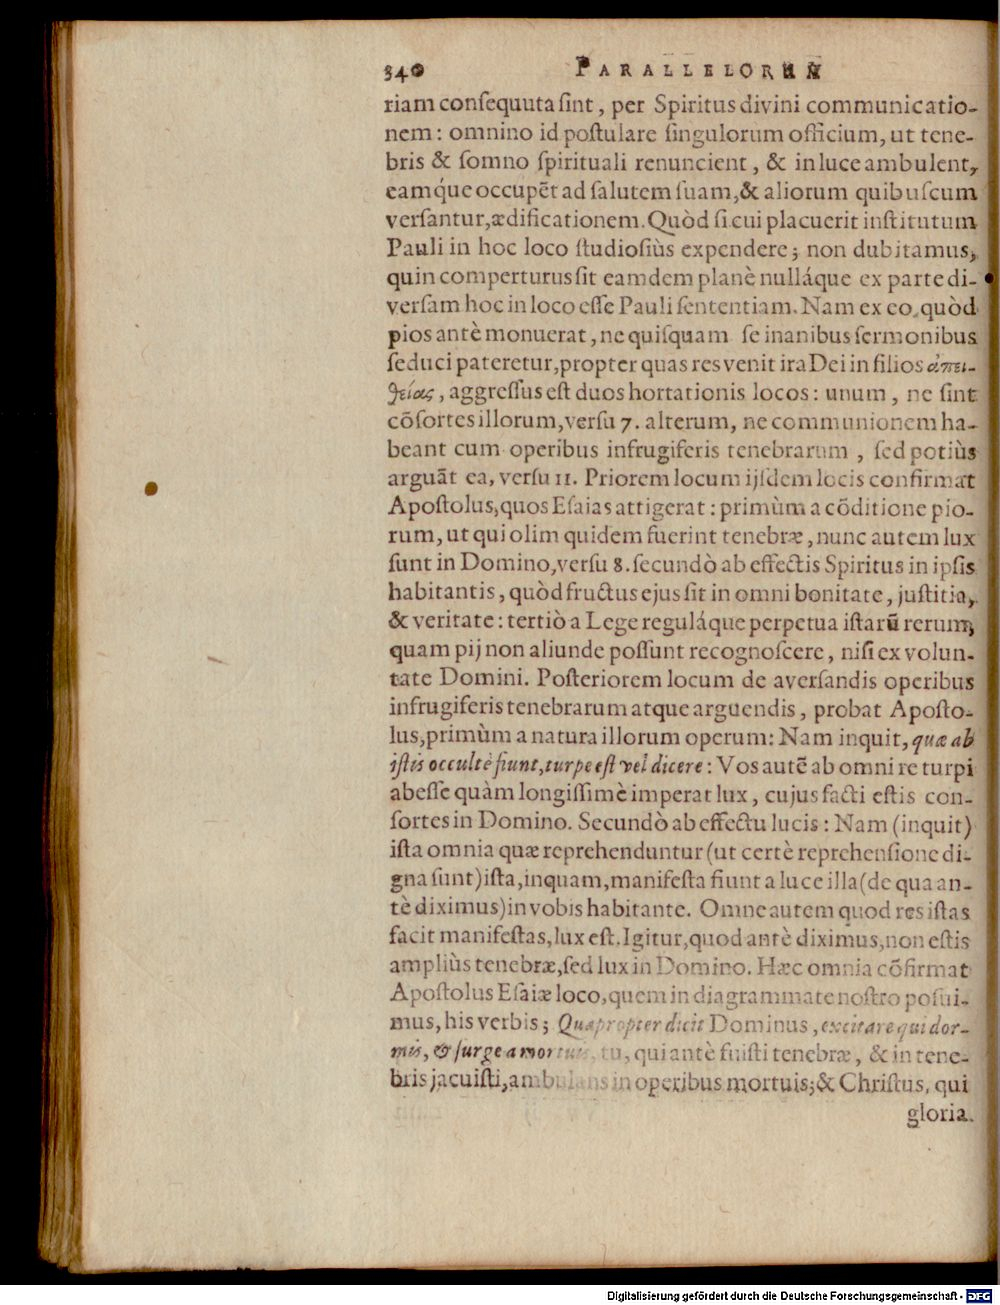 340 PARALLELORUM
riam conſequuta ſint, per Spiritus divini communicatio-
nem: omnino id poſtulare ſingulorum officium, ut tene-
bris & ſomno ſpirituali renuncient, & in luce ambulent,
eamq́ue occupẽt ad ſalutem ſuam, & aliorum quibuſcum
verſantur, ædificationem. Quòd ſi cui placuerit inſtitutum
Pauli in hoc loco ſtudioſiùs expendere; non dubitamus,
quin comperturus ſit eamdem planè nulláque ex parte di-
verſam hoc in loco eſſe Pauli ſententiam. Nam ex eo, quòd
pios antè monuerat, ne quiſquam ſe inanibus ſermonibus
ſeduci pateretur, propter quas res venit ira Dei in filios ἀπει-
θείας, aggreſſus eſt duos hortationis locos: unum, ne ſint
cõſortes illorum, verſu 7. alterum, ne communionem ha-
beant cum operibus infrugiferis tenebrarum, ſed potiùs
arguãt ea, verſu 11. Priorem locum ijſdem locis confirmat
Apoſtolus, quos Eſaias attigerat: primùm a cõditione pio-
rum, ut qui olim quidem fuerint tenebræ, nunc autem lux
ſunt in Domino, verſu 8. ſecundò ab effectis Spiritus in ipſis
habitantis, quòd fructus ejus ſit in omni bonitate, juſtitia,
& veritate: tertiò a Lege reguláque perpetua iſtarũ rerum,
quam pij non aliunde poſſunt recognoſcere, niſi ex volun-
tate Domini. Poſteriorem locum de averſandis operibus
infrugiferis tenebrarum atque arguendis, probat Apoſto-
lus, primùm a natura illorum operum: Nam inquit, quæ ab
iſtis occultè fiunt, turpe eſt vel dicere: Vos autẽ ab omni re turpi
abeſſe quàm longiſſimè imperat lux, cujus facti eſtis con-
ſortes in Domino. Secundò ab effectu lucis: Nam (inquit)
iſta omnia quæ reprehenduntur (ut certè reprehenſione di-
gna ſunt) iſta, inquam, manifeſta fiunt a luce illa (de qua an-
tè diximus) in vobis habitante. Omne autem quod res iſtas
facit manifeſtas, lux eſt. Igitur, quod antè diximus, non eſtis
ampliùs tenebræ, ſed lux in Domino. Hæc omnia cõfirmat
Apoſtolus Eſaiæ loco, quem in diagrammate noſtro poſui-
mus, his verbis; Quapropter dicit Dominus, excitare qui dor-
mis, & ſurge a mortuis, tu, qui antè fuiſti tenebræ, & in tene-
bris jacuiſti, ambulans in operibus mortuis; & Chriſtus, qui
gloria
Digitalisierung gefördert durch die Deutsche Forschungsgemeinschaft - DFG